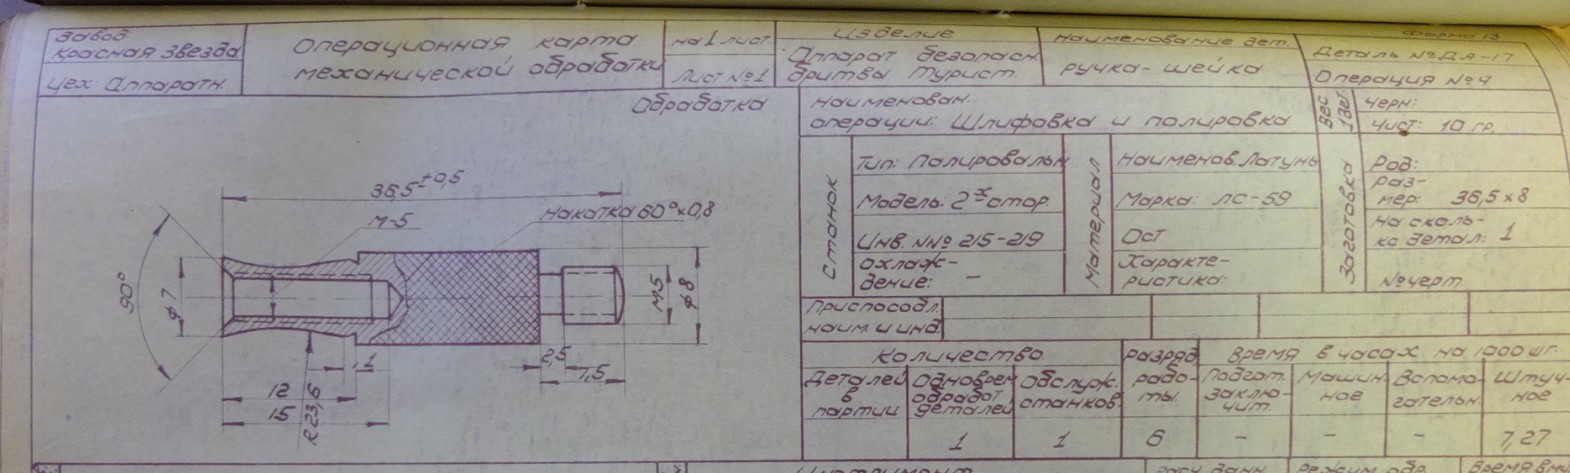 Завод
Красная Звезда
Цех Аппаратн.
Операционная карта
механической обработки
на 1 лист
Лист №1
Изделие
Аппарат безопасн.
бритвы турист.
Наименование дет.
ручка-шейка
Форма 13
Деталь № ДА-17
Операция №4
Обработка
Наименован.
операции: Шлифовка и полировка
Вес 1 дет.
Черн:
Чист: 10 гр.
Станок
Тип: Полировальн
Модель: 2х стор.
Инв. №№ 215-219
Охлаж-
дение: –
Материал
Наименов. Латунь
Марка: ЛС-59
Ост
Характе-
ристика:
Заготовка
Род:
Раз-
мер: 36,5 х 8
На сколь-
ко детал: 1
№ черт.
Приспособл.
наим. и инд.
Количество
Разряд
рабо-
ты.
Время в часах на 1000 шт.
Деталей
в
партии
Одноврем
обработ.
деталей
Обслуж.
станков
Подгот.
заклю-
чит.
Машин-
ное
Вспомо-
гательн.
Штуч-
ное
1
1
6
–
–
–
7,27
36,5 ±0,5
М-5
Накатка 60° х 0,8
90°
ф 7
М5
ф 8
1
2,5
7,5
12
15
R 23,6
Инструмент
Режим обр.